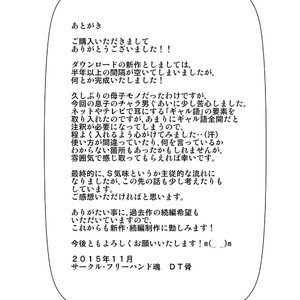 あとがき
ご購入いただきまして
ありがとうございました！！
ダウンロードの新作としましては、
半年以上の間隔が空いてしまいましたが、
何とか完成いたしました！
久しぶりの母子モノだったわけですが、
今回の息子のチャラ男ぐあいに少し苦心しました。
ネットやテレビで耳にする「ギャル語」の要素を
取り入れたのですが、あまりにギャル語全開だと
注釈が必要になってしまうので、
程よく入れるよう心がけてみました…(汗)
使い方が間違っていたり、何を言っているか
わからない箇所もあったかもしれませんが、
雰囲気で感じ取ってもらえれば幸いです。
最終的に、Ｓ気味というか主従的な流れに
なりましたが、この先の話も少し考えたりも
しています。
ご感想いただければと思います。
ありがたい事に、過去作の続編希望も
いただいていますので、
これからも新作・続編制作に勤しみます！
今後ともよろしくお願いいたします！m(_ _)m
２０１５年１１月
サークル・フリーハンド魂　ＤＴ骨